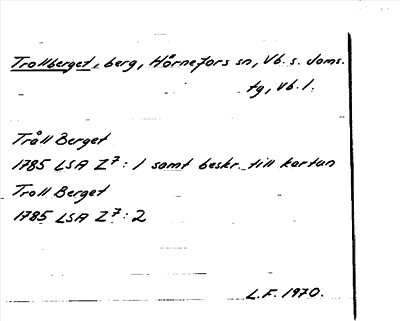 Trollberget, berg, Hörnefors sn, Vb. s. doms.
tg, Vb. l.
Tråll Berget
1785 LSA Z7: 1 samt beskr. till kartan
Troll Berget
1785 LSA Z7: 2
L.F. 1970.